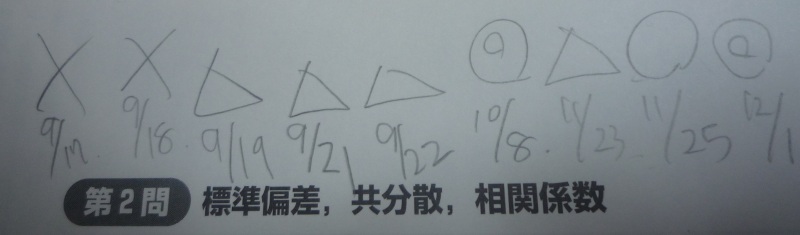 × × △ △ △ ◎ △ ○ ◎
9/17 9/18 9/19 9/21 9/22 10/8 11/23 11/25 12/1
第2問 標準偏差，共分散，相関係数